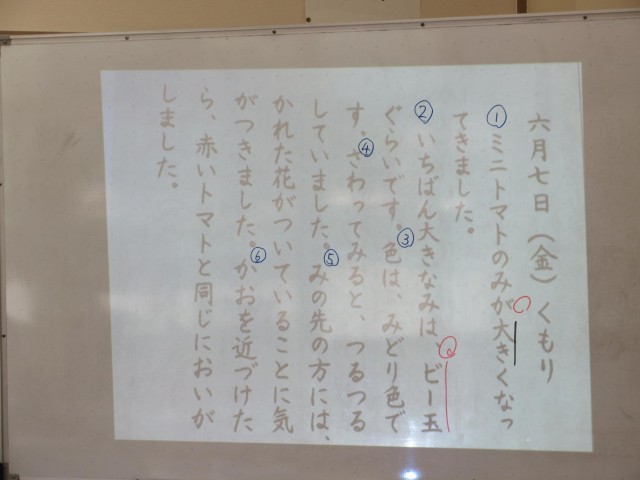 六月七日(金)くもり
①ミニトマトのみが大きくなっ
てきました。
②いちばん大きなみは、ビー玉
ぐらいです。③色は、みどり色で
す。④さわってみると、つるつる
していました。⑤みの先の方には、
かれた花がついていることに気
がつきました。⑥かおを近づけた
ら、赤いトマトと同じにおいが
しました。